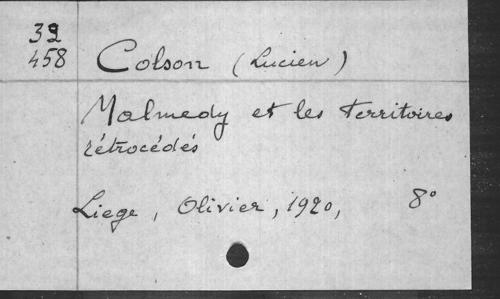 39
458 Colson (Lucien)
Malmedy et les territoires
rétrocédés
Liege, Olivier, 1920, 8°